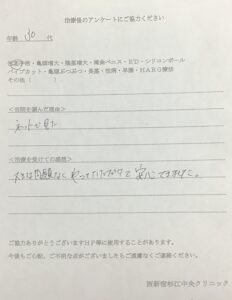 治療後のアンケートにご協力ください
年齢 30 代
包茎手術・亀頭増大・陰茎増大・埋没ペニス・ED・シリコンボール
パイプカット・亀頭ぶつぶつ・長茎・性病・早漏・HARG療法
その他(
<当院を選んだ理由>
ネットで見た
<治療を受けての感想>
大きな問題なく
安心できました。
ご協力ありがとうございますHP等に使用することがあります。
今後もご心配、ご不明な点がございましたらご遠慮なくご連絡ください。
西新宿杉江中央クリニック